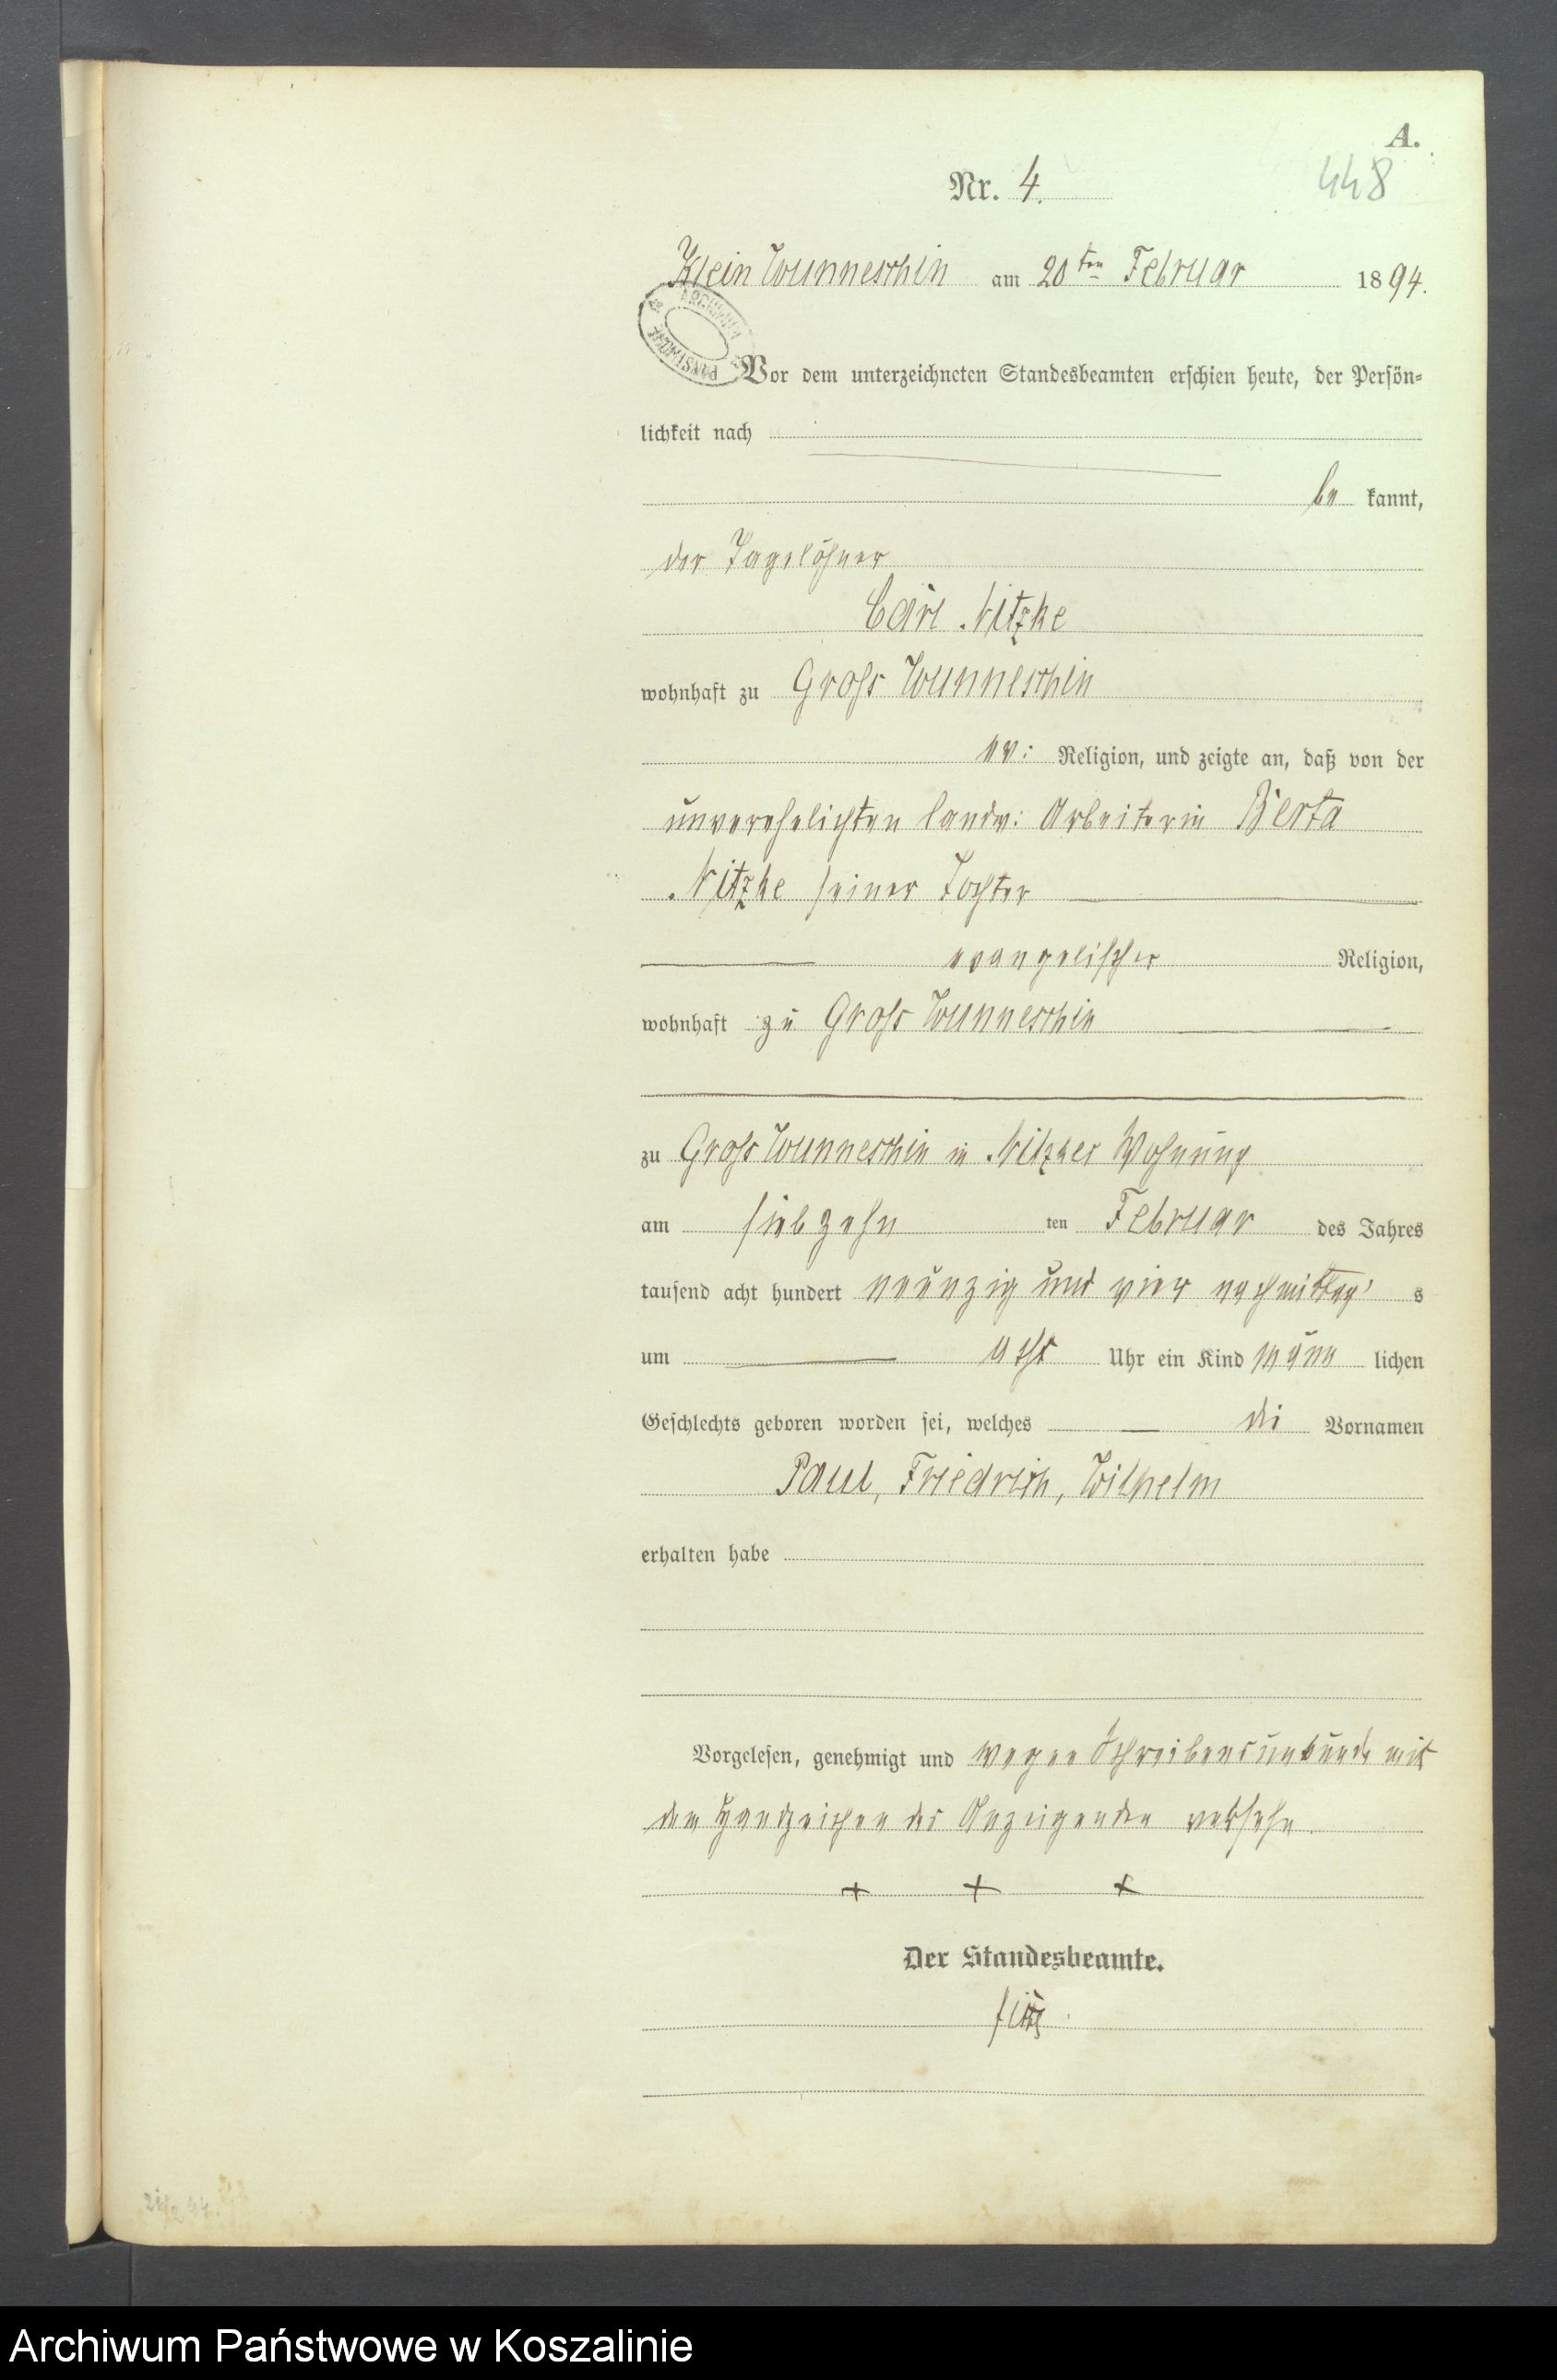 A.
Nr. 4.
448
Klein Wunneschin am 20ten Februar 1894.
Vor dem unterzeichneten Standesbeamten erschien heute, der Persön-
lichkeit nach
be kannt,
der Tagelöhner
Carl Nitzke
wohnhaft zu Groß Wunneschin
ev: Religion, und zeigte an, daß von der
unverehelichten landw: Arbeiterin Berta
Nitzke seiner Tochter
evangelischer Religion,
wohnhaft zu Groß Wunneschin
zu Groß Wunneschin in Nitzkes Wohnung
am siebzehn ten Februar des Jahres
tausend acht hundert neunzig und vier nachmittag s
um acht Uhr ein Kind männ lichen
Geschlechts geboren worden sei, welches die Vornamen
Paul, Friedrich, Wilhelm
erhalten habe
Vorgelesen, genehmigt und wegen Schreibensunkunde mit
den Handzeichen des Anzeigenden versehn.
+ + +
Der Standesbeamte.
Archiwum Państwowe w Koszalinie